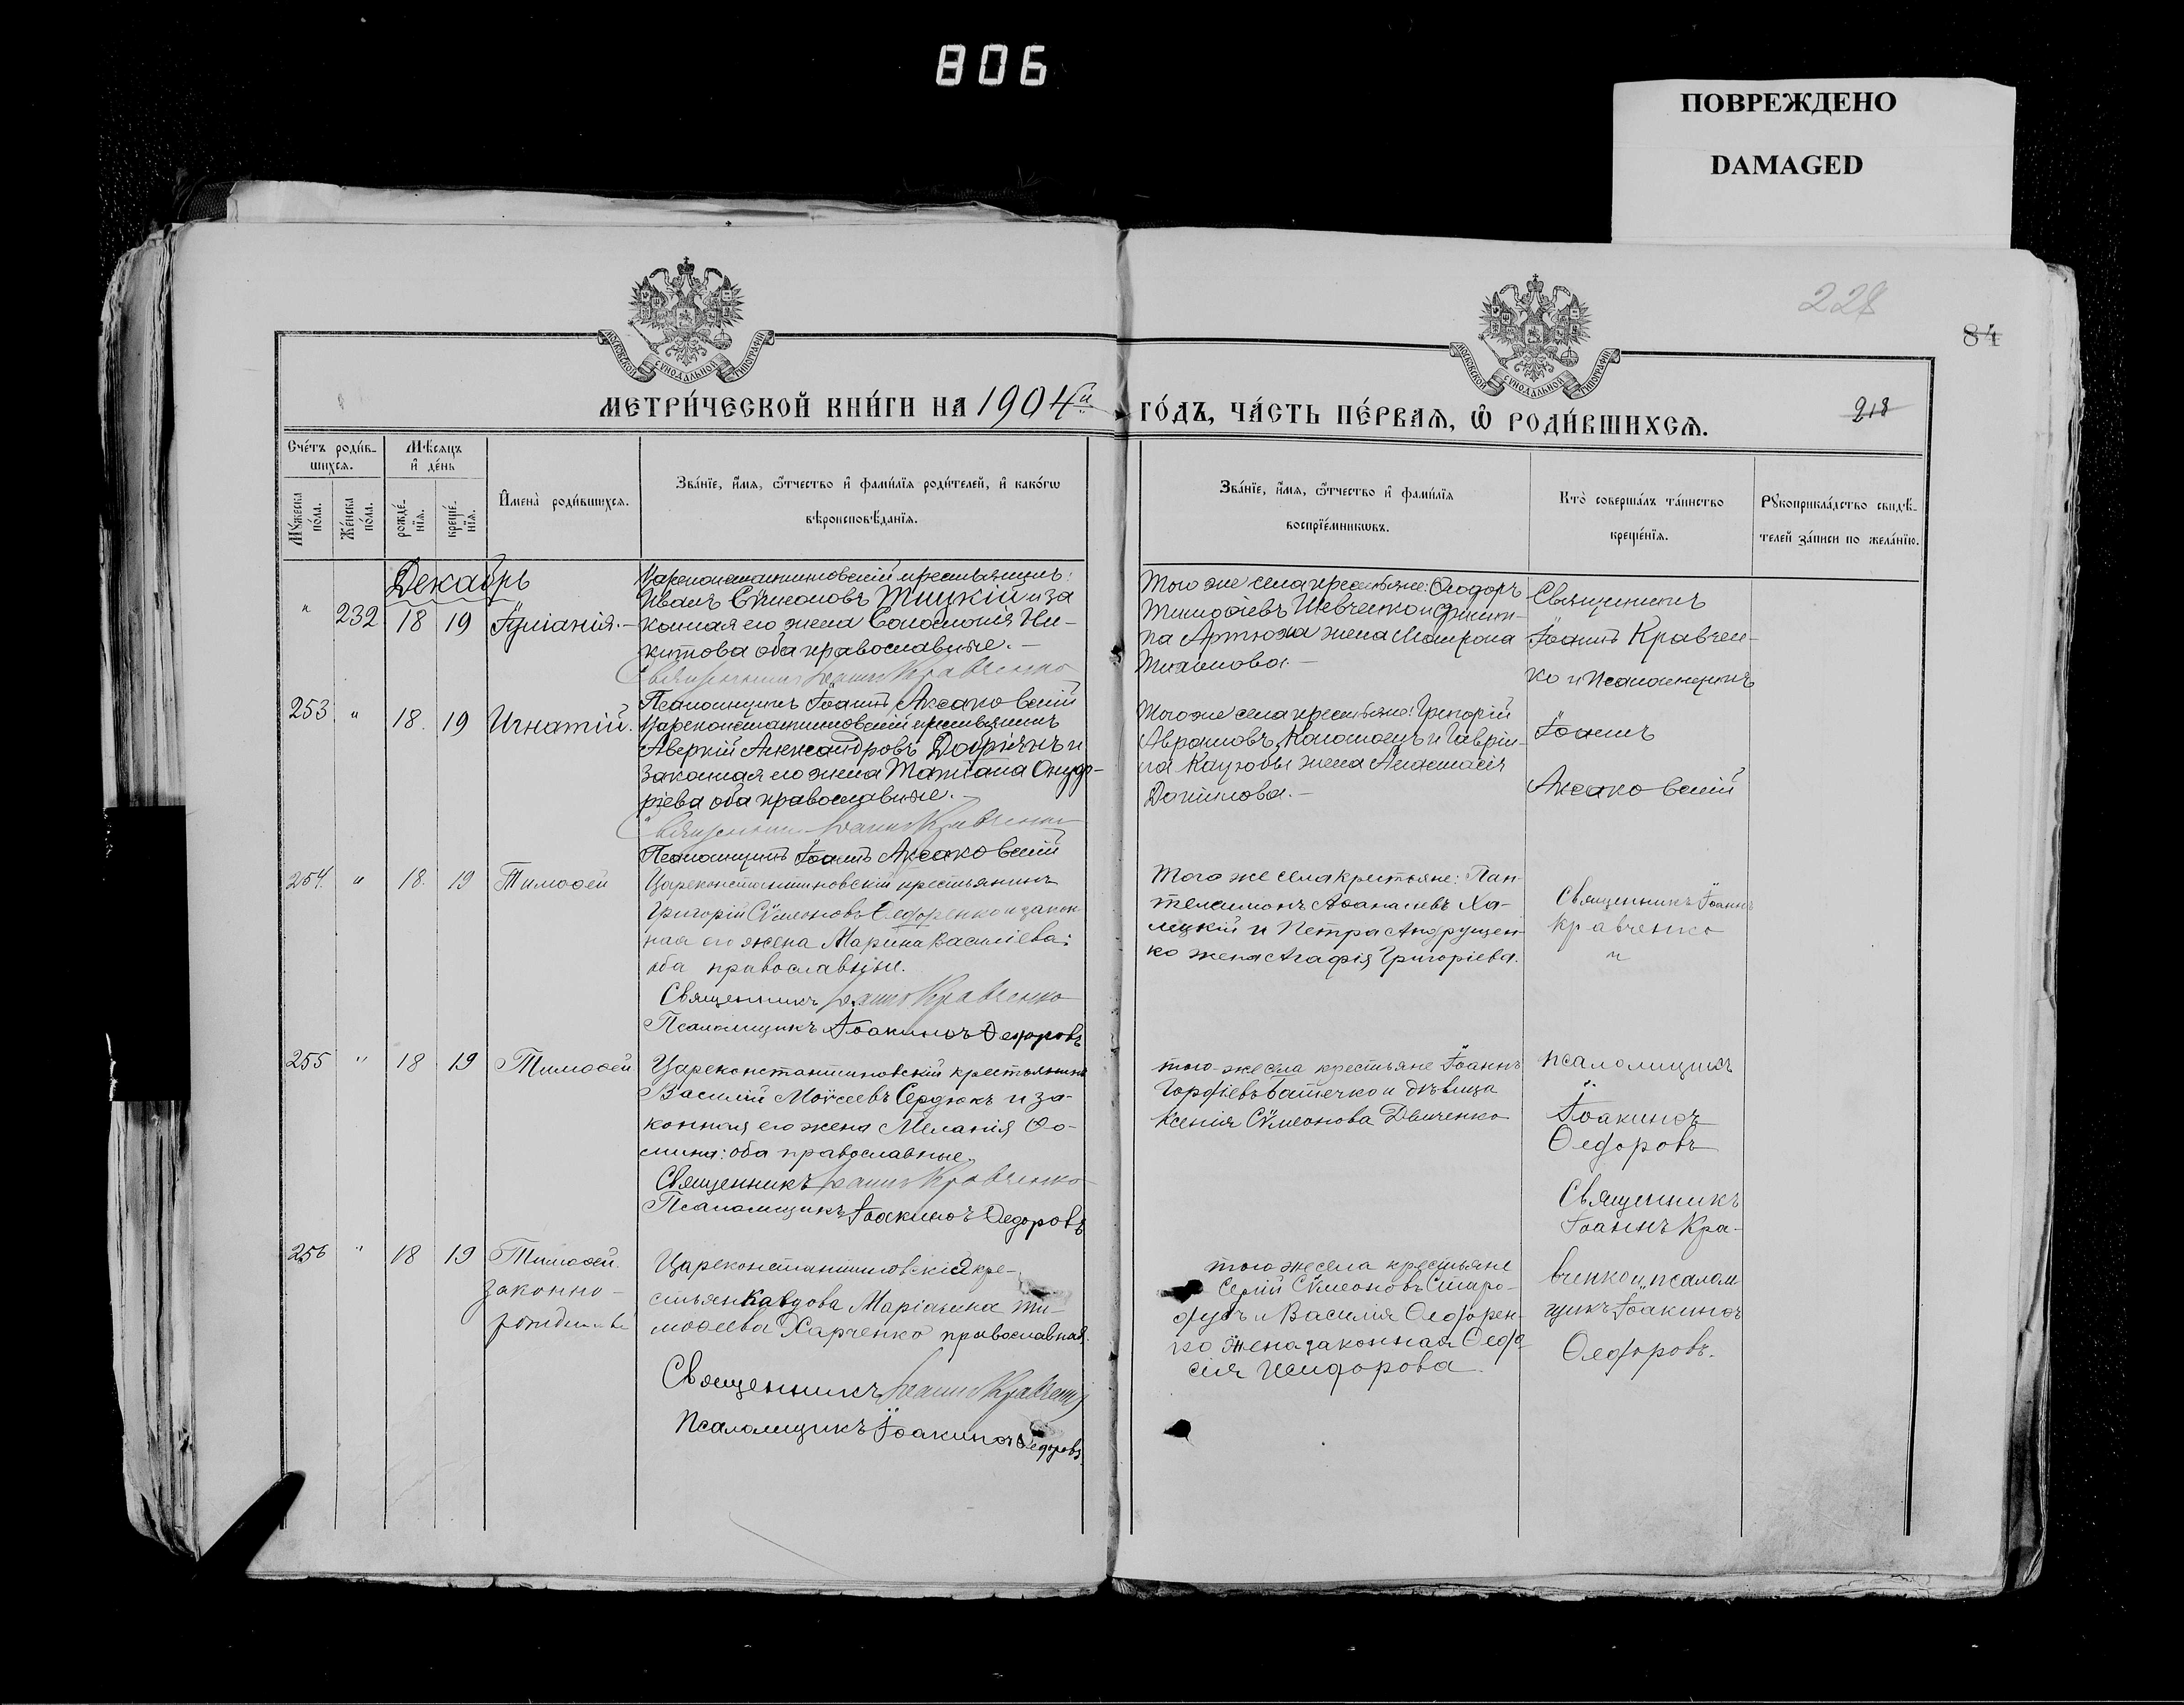 806
ПОВРЕЖДЕНО
DAMAGED
228
84
218
МОСКОВСКОЙ СУНОДАЛЬНОЙ ТИПОГРАФІИ
МОСКОВСКОЙ СУНОДАЛЬНОЙ ТИПОГРАФІИ
МЕТРИ́ЧЕСКОЙ КНИ́ГИ НА 1904й ГО́ДЪ, ЧА́СТЬ ПЕ́РВАѦ, Ѡ҆ РОДИ́ВШИХСѦ.
Сче́тъ роди́в-
шихсѧ.
Мѣ́сѧцъ
и҆ де́нь
Мꙋ́жеска по́ла.
Же́нска по́ла.
рожде́-
нїѧ.
креще́-
нїѧ.
И҆мена̀ роди́вшихсѧ.
Зва́нїе, и҆́мѧ, ѻ҆́тчество и҆ фами́лїѧ роди́телей, и҆ како́гѡ
вѣроисповѣ́данїѧ.
Зва́нїе, и҆́мѧ, ѻ҆́тчество и҆ фами́лїѧ
воспрїе́мникѡвъ.
Кто̀ соверша́лъ та́инство
креще́нїѧ.
Рꙋкоприкла́дство свидѣ́-
телей за́писи по жела́нїю.
Декабрь
" 232 18 19 Іуліанія.-
Цареконстантиновскій крестьянинъ:
Иванъ Сѵмеоновъ Тицкій и за
конная его жена Соломонія Ни-
китова оба православные.-
Священникъ Іоаннъ Кравченко
Псаломщикъ Іоаннъ Аксаковскій
Того же села крестьяне: Ѳеодоръ
Тимоѳіевъ Шевченко и Филип-
па Артюха жена
Священникъ
Іоаннъ Кравчен-
ко и Псаломщикъ
253 " 18. 19 Игнатій.
Цареконстантиновскій крестьянинъ
Аверкій Александровъ и
законная его жена Татіана Онуф-
ріева оба православные.-
Священникъ Іоаннъ Кравченко
Псаломщикъ Іоаннъ Аксаковскій
Того же села крестьяне: Григорій
Аврамовъ Коломоецъ и Гаврі-
ила жена Анастасія
Данилова.-
Іоаннъ
Аксаковскій
254. " 18. 19 Тимоѳей
Цареконстантиновскій крестьянинъ
Григорій Сѵмеоновъ Ѳедоренко и закон
ная его жена Марина Василіева:
оба православные.
Священникъ Іоаннъ Кравченко
Псаломщикъ Іоакимъ Ѳедоровъ
Того же села крестьяне: Пан-
телеимонъ Аѳанасіевъ Ха-
лецкій и Петра Андрущен-
ко жена Агафія Григоріева.
Священникъ Іоаннъ
Кравченко
и
255 " 18 19 Тимоѳей
Цареконстантиновскій крестьянинъ
Василій Моѵсеевъ Сердюкъ и за-
конная его жена Меланія Ѳо-
мина: оба православные.
Священникъ Іоаннъ Кравченко
Псаломщикъ Іоакимъ Ѳедоровъ
того-же села крестьяне Іоаннъ
Гордіевъ Батечко и дѣвица
Ксенія Сѵмеонова
псаломщикъ
Іоакимъ
Ѳедоровъ
Священникъ
Іоаннъ Кра-
256 " 18 19 Тимоѳей.
законно-
Цареконстантиновская кре-
стьянка вдова Маріанна Ти-
моѳеева Харченко православная.
Священникъ Іоаннъ Кравченко
Псаломщикъ Іоакимъ Ѳедоровъ.
того же села крестьяне
Сергій Сѵмеоновъ Старо-
дубъ и Василія Ѳедорен-
ко жена законная Ѳеодо
сія Исидорова.
вченко и псалом
щикъ Іоакимъ
Ѳедоровъ.